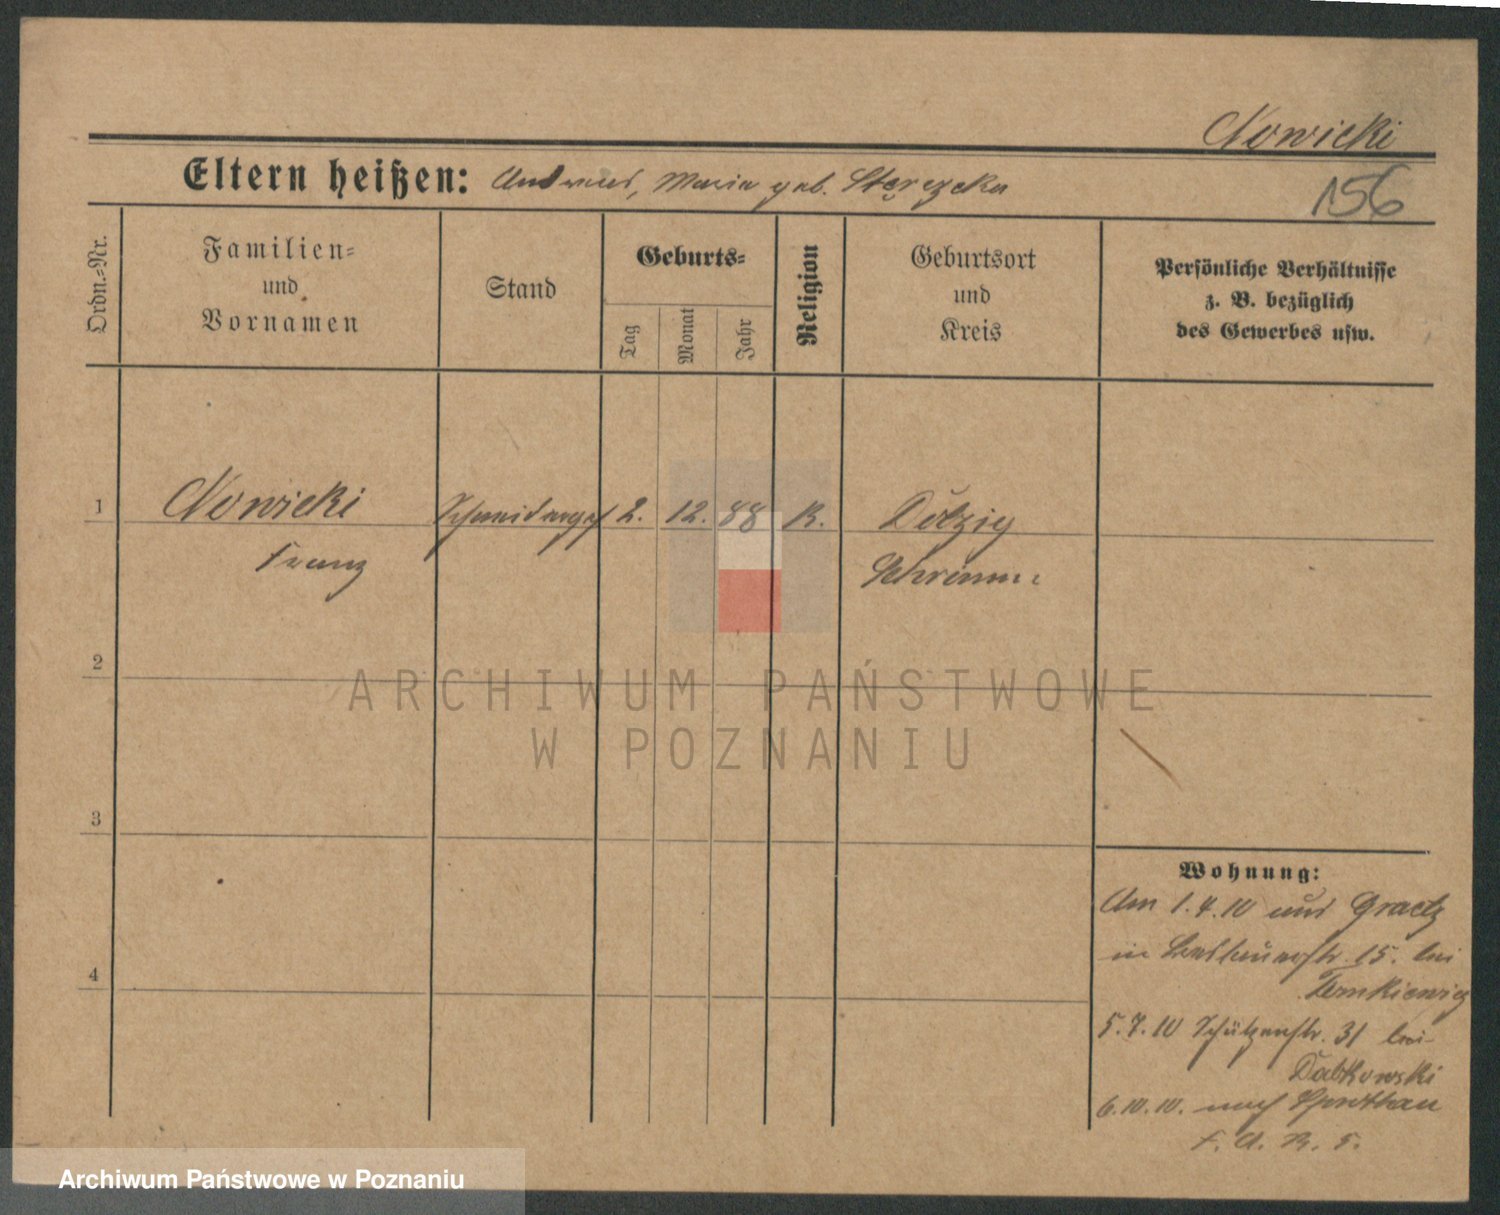 Nowicki
Eltern heißen: Andreas, Maria geb.
156
Ordn.=Nr.
Familien=
und
Vornamen
Stand
Geburts=
Tag
Monat
Jahr
Religion
Geburtsort
und
Kreis
Persönliche Verhältnisse
z. B. bezüglich
des Gewerbes usw.
1
Nowicki
Schneiderges
2.
12.
88
K.
Dolzig
Franz
Schrimm
2
ARCHIWUM PAŃSTWOWE
W POZNANIU
3
Wohnung:
Am 1.4.10 aus Graetz
in 15. bei
4
5.7.10 Schützenstr. 31 bei
Dabkowski
6.10.10. nach
F. A. R. 5.
Archiwum Państwowe w Poznaniu